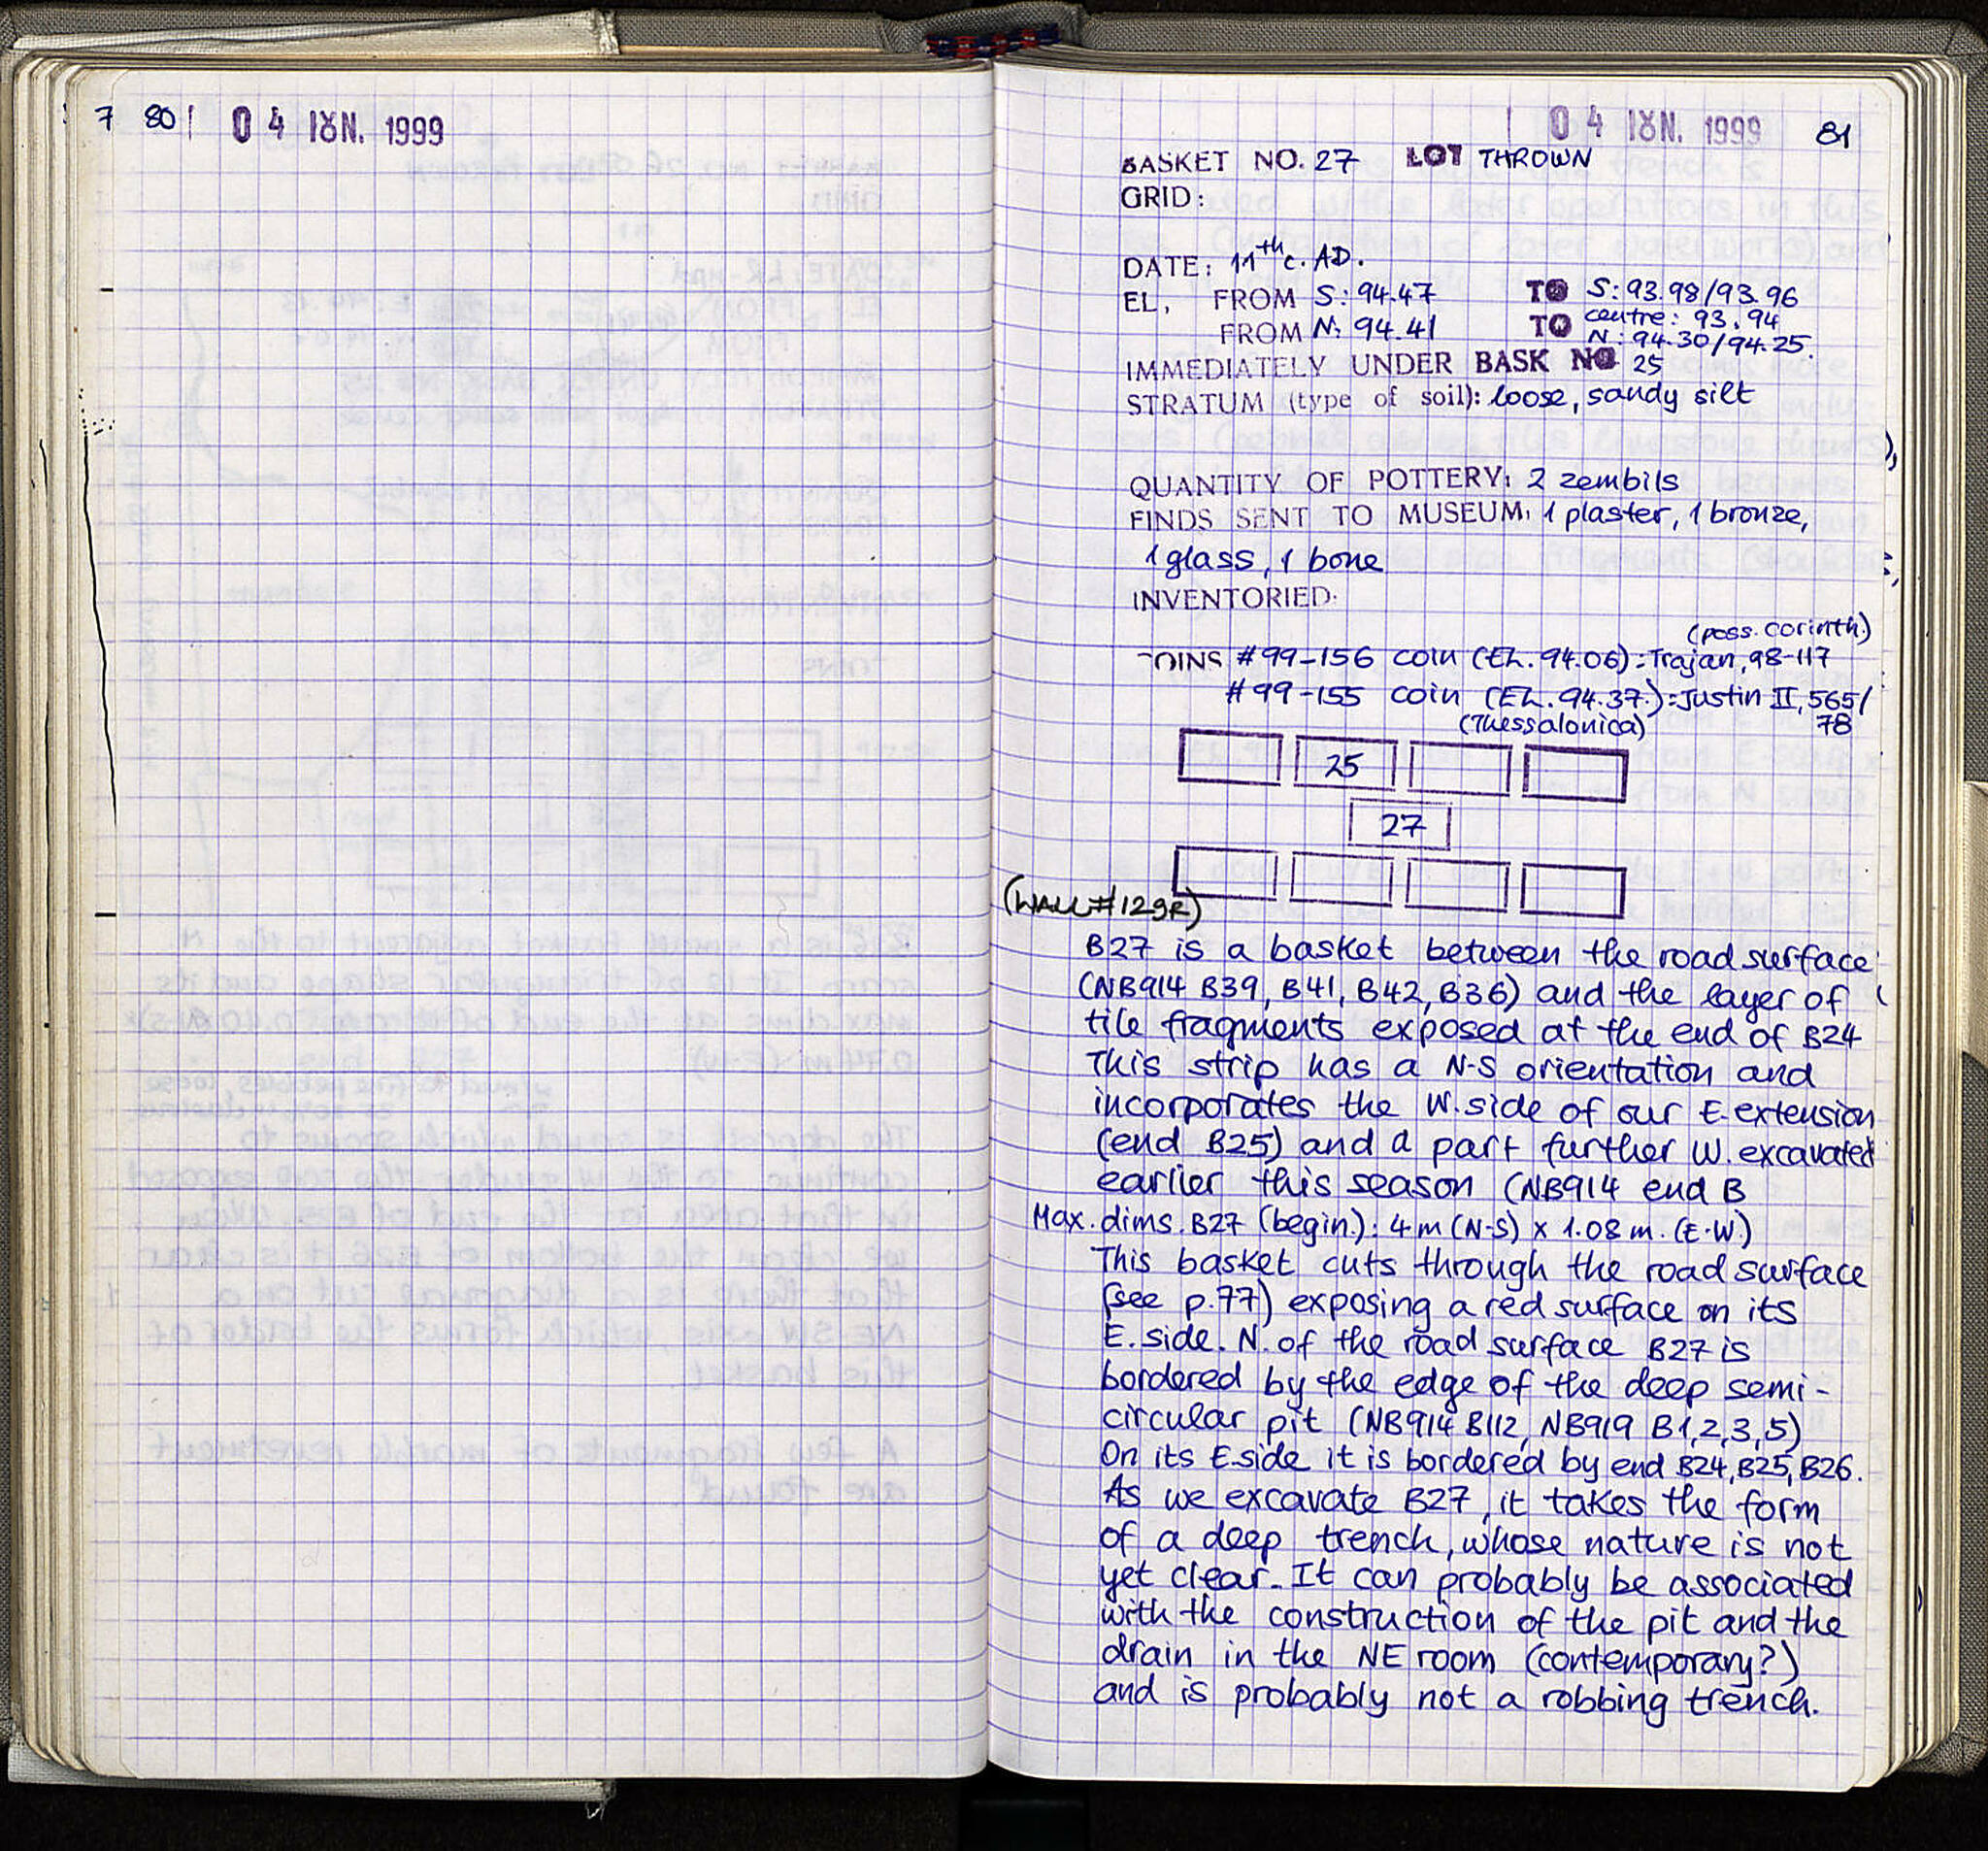 7 80 04 ΙΟΥΝ. 1999
04 ΙΟΥΝ. 1999 81
BASKET NO. 27 LOT THROWN
GRID:
DATE: 11th c. AD.
EL, FROM S: 94.47 TO S: 93.98/93.96
centre: 93.94
FROM N: 94.41 TO N: 94.30/94.25.
IMMEDIATELY UNDER BASK NO 25
STRATUM (type of soil): loose, sandy silt
QUANTITY OF POTTERY: 2 zembils
FINDS SENT TO MUSEUM: 1 plaster, 1 bronze,
1 glass, 1 bone
INVENTORIED:
(poss. Corinth)
COINS #99-156 coin (EL. 94.06): Trajan, 98-117
#99-155 coin (EL. 94.37.): Justin II, 565/
(Thessalonica) 78
25
27
(WALL #129R)
B27 is a basket between the road surface
(NB914 B39, B41, B42, B36) and the layer of
tile fragments exposed at the end of B24
This strip has a N-S orientation and
incorporates the W. side of our E. extension
(end B25) and a part further W. excavated
earlier this season (NB914 end B
Max. dims. B27 (begin.): 4 m (N-S) x 1.08 m. (E-W.)
This basket cuts through the road surface
(see p.77) exposing a red surface on its
E. side. N. of the road surface B27 is
bordered by the edge of the deep semi-
circular pit (NB914 B112, NB919 B1,2,3,5)
On its E. side it is bordered by end B24, B25, B26.
As we excavate B27, it takes the form
of a deep trench, whose nature is not
yet clear. It can probably be associated
with the construction of the pit and the
drain in the NE room (contemporary?)
and is probably not a robbing trench.